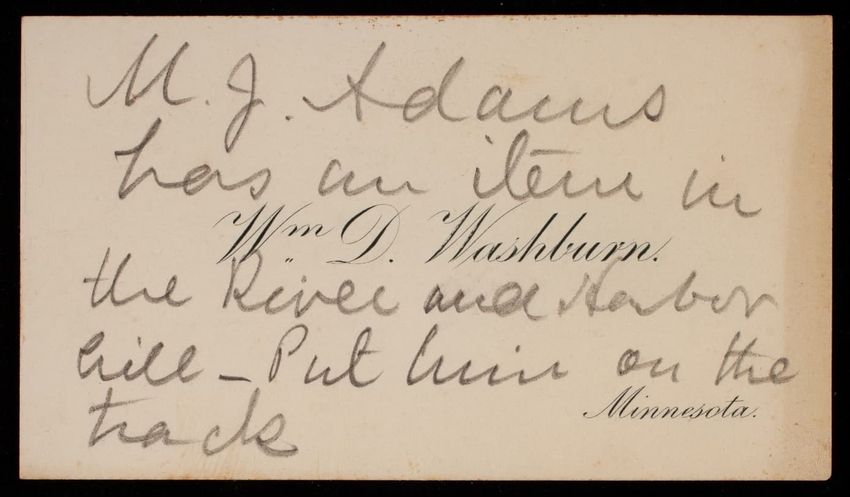 M. J. Adams
has an item in
Wm D. Washburn.
the River and Harbor
bill - Put him on the
Minnesota.
track